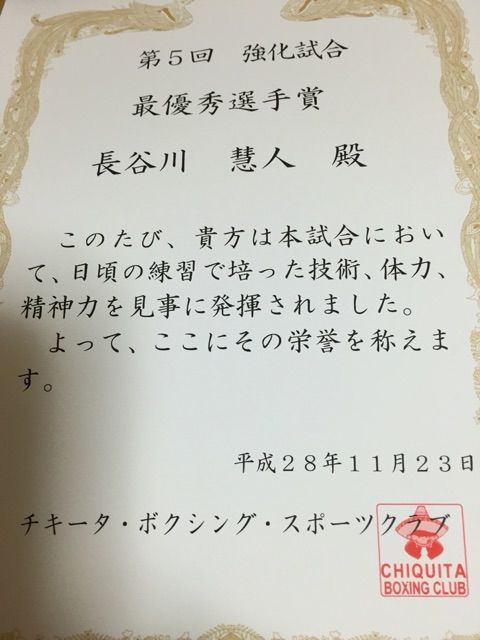 第５回　強化試合
最優秀選手賞
長谷川　慧人　殿
このたび、貴方は本試合におい
て、日頃の練習で培った技術、体力、
精神力を見事に発揮されました。
よって、ここにその栄誉を称えま
す。
平成２８年１１月２３日
チキータ・ボクシング・スポーツクラブ
CHIQUITA
BOXING CLUB